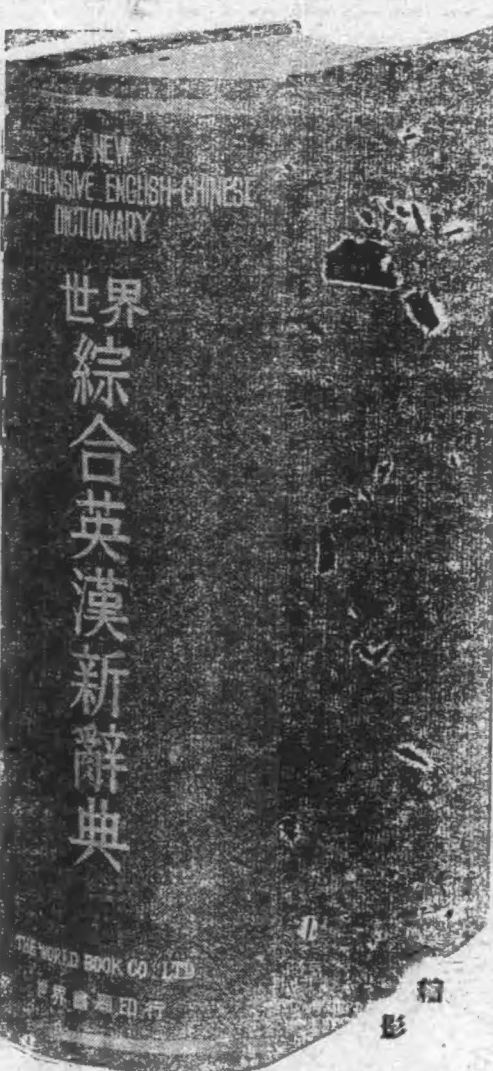 A NEW
COMPREHENSIVE ENGLISH-CHINESE
DICTIONARY
世界
綜合英漢新辭典
THE WORLD BOOK CO LTD
世界書局印行
影